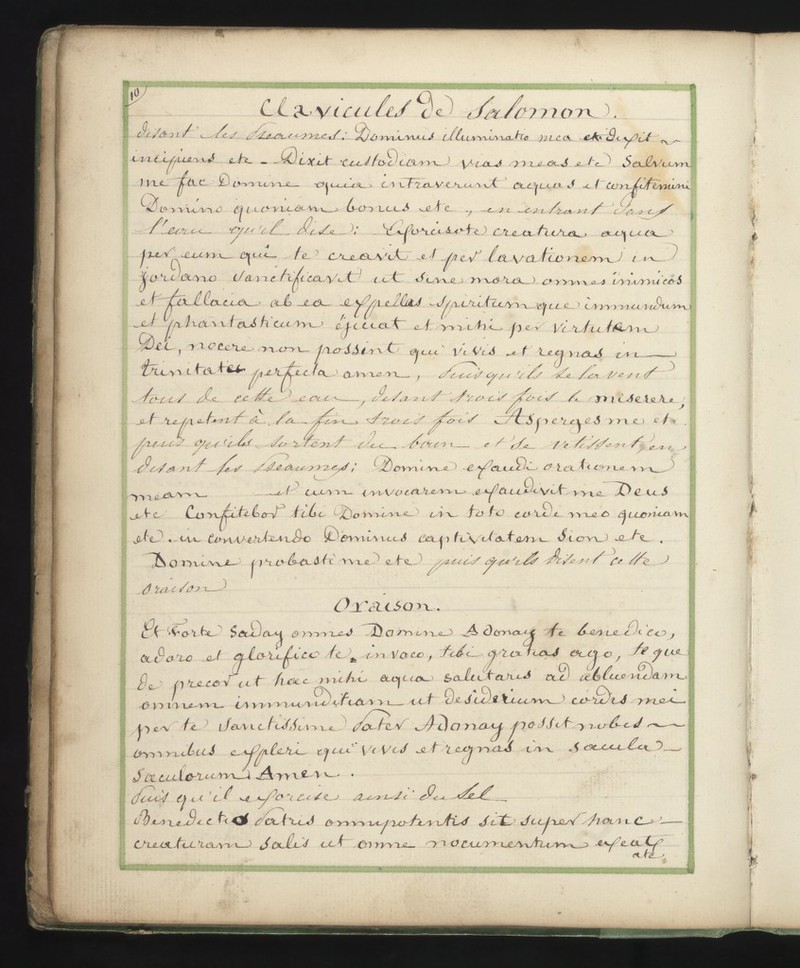 10
Clavicules de Salomon.
disant les Pseaumes: Dominus illuminatio mea et Dixit
incipiens etc - Dixit custodiam vias meas etc Salvum
me fac Domine quia intraverunt aquas et confitemini
Domino quoniam bonus etc, en entrant dans
l'eau qu'il dise: Exorcisote creatura aqua
per eum qui te creavit et per lavationem in
Jordano sanctificavit ut sine mora omnes inimicos
et fallacia ab ea expellas spiritum que immundum
et phantasticum éjiciat et mihi per virtutem
Dei, nocere non possint qui vivis et regnas in
trinitate perfecta amen, Puis qu'ils se lavent
tous de cette eau, disant trois fois le miserere,
et repetent à la fin trois fois Asperges me etc
puis qu'ils sortent du bain et se vetissent en
disant les Pseaumes: Domine exaudi orationem
meam et cum invocarem exaudivit me Deus
etc Confitebor tibi Domine in toto corde meo quoniam
etc. in convertendo Dominus captivitatem Sion etc.
Domine probasti me etc puis qu'ils disent cette
oraison
Oraison.
Et Forte Saday omnes Domine Adonay te benedico,
adoro et glorifico te, invoco, tibi gratias ago, te que
de precor ut hac mihi aqua salutaris ad abluendam
omnem immunditiam ut desiderium cordis mei
per te sanctissime Pater Adonay possit nobis
omnibus expleri qui vivis et regnas in sæcula
Sæculorum Amen.
Puis qu'il exorcise ainsi du Sel
Benedictio Patris omnipotentis sit super hanc
creaturam salis ut omne nocumentum exeat